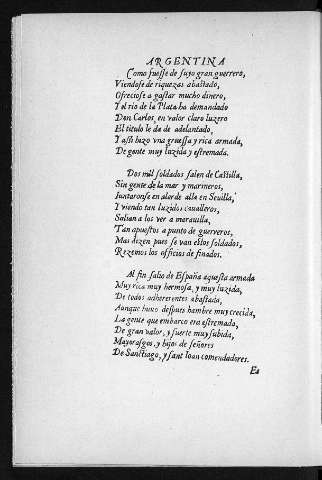 ARGENTINA
Como fuesse de suyo gran guerrero,
Viendose de riquezas abastado,
Ofreciose a gastar mucho dinero,
Y el rio de la Plata ha demandado
Don Carlos, en valor claro luzero
El titulo le da de adelantado,
Y assi hizo vna gruessa y rica armada,
De gente muy luzida y estremada.
Dos mil soldados salen de Castilla,
Sin gente de la mar y marineros,
Juntaronse en alarde alla en Seuilla,
Y viendo tan luzidos caualleros,
Salian a los ver a marauilla,
Tan apuestos a punto de guerreros,
Mas dizen pues se van estos soldados,
Rezemos los officios de finados.
Al fin salio de España aquesta armada
Muy rica muy hermosa, y muy luzida,
De todos adherentes abastada,
Aunque huuo despues hambre muy crecida,
La gente que embarco era estremada,
De gran valor, y suerte muy subida,
Mayorasgos, y hijos de señores
De Sanctiago, y sant Ioan comendadores.
Es